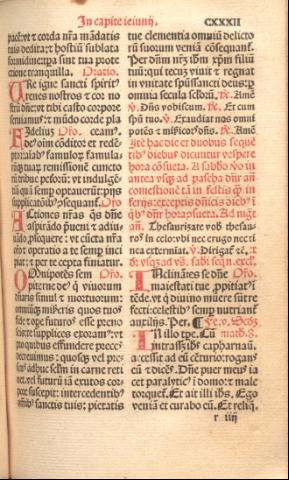 In capite ieiunij.
CXXXII
pace: vt ⁊ corda nr̃a mãdatis
tuis dedita: ⁊ hostiũ sublata
formidine: tp̃a sint tua prote
ctione tranquilla. Oratio.
Vre igne sancti spirit⁹
renes nostros ⁊ cor no
strũ dñe: vt tibi casto corpore
seruiam⁹: ⁊ mũdo corde pla
Fidelium Oĩo. ceam⁹.
de⁹ oĩm cõditor et redẽ
ptor: aĩab⁹ famulorũ famula
rũq; tuarũ remissionẽ cuncto
tribue petõrũ: vt indulgẽ
tiã quã semp optauerũt: pijs
supplicatiõib⁹ ɔsequant̃. Oĩo
Actiones nr̃as q̃s dñe
aspirãdo p̃ueni ⁊ adiu
uãdo ꝓsequere: vt cũcta nr̃a
operatio a te semp inci
piat: ⁊ per te cepta finiatur.
Omnipotẽs sem Oĩo.
piterne de⁹ q̃ viuorum
dñaris simul ⁊ mortuorum
omniũq; miseris quos tuos
fide ⁊ ope futuros esse preno
scis: te supplices exoram⁹: vt
pro quibus effundere preces
decreuimus: quosq; vel pre
sens adhuc sclm̃ in carne reti
net: vel futurũ iã exutos cor
pore suscepit: intercedentib⁹
oĩb⁹ sanctis tuis: pietatis
tue clementia omniũ delicto
rũ suorum veniã cõsequant̃.
Per dñm nr̃ʒ ihm xp̃m filiũ
tuũ: qui tecũ viuit ⁊ regnat
in vnitate sp̃ussancti deus: ꝑ
omnia secula secłorũ. ℟. Amẽ
℣. Dñs vobiscum. ℟. Et cum
spũ tuo. ℣. Exaudiat nos omni
potẽs ⁊ mĩsericors dñs. ℟. Amẽ
dieb⁹ dicuntur vespere
hora cõsueta. A sabbõ vo in
antea vsq; ad pascha dñr añ
comestionẽ tã in festis q̃ in
ferijs: exceptis dñicis dieb⁹ ĩ
q̃b⁹ dñr hora ɔsueta. Ad mgt̃
añ. Thesaurizate vob thesau
ros in celo: vbi nec erugo nec ti
nea exterminat. ℣. Dirigat̃ ⁊c̃.
Inclinãtes se dñe Oĩo.
maiestati tue ꝓpitiat⁹ ĩ
tẽde: vt q̃ diuino munere sũt re
fecti: celestib⁹ semp nutriant̃
auxilijs. Per.
In illo tp̃e. Cũ math. 8.
intrasset ihs capharnaũ:
accessit ad eũ cẽturio: rogans
eũ ⁊ dicẽs. Dñe puer meus ia
cet paralytic⁹ ĩ domo: ⁊ male
torquet̃. Et ait illi ihs. Ego
veniã et curabo eũ. Et reliq̃.
r iiij